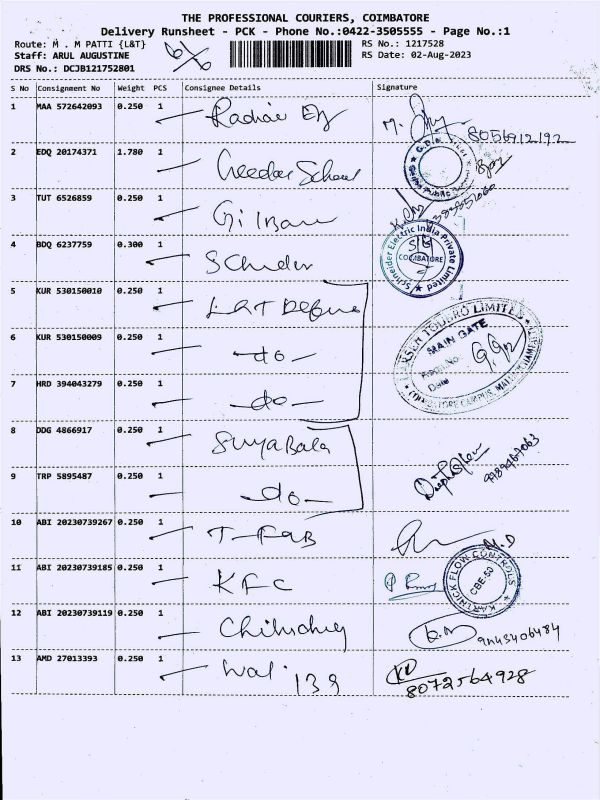 THE PROFESSIONAL COURIERS, COIMBATORE
Delivery Runsheet - PCK - Phone No.:0422-3505555 - Page No.:1
Route: M . M PATTI {L&T} RS No.: 1217528
Staff: ARUL AUGUSTINE RS Date: 02-Aug-2023
DRS No.: DCJB121752801
S No Consignment No Weight PCS Consignee Details Signature
1 MAA 572642093 0.250 1
8056912192
2 EDQ 20174371 1.780 1
School
3 TUT 6526859 0.250 1
4 BDQ 6237759 0.300 1
Schneider Electric India Private Limited
COIMBATORE
5 KUR 530150010 0.250 1 L&T Defence
6 KUR 530150009 0.250 1 -do-
LARSEN TOUBRO LIMITED
MAIN GATE
Date
7 HRD 394043279 0.250 1 -do-
8 DDG 4866917 0.250 1 SuryaBala
9 TRP 5895487 0.250 1 -do-
10 ABI 20230739267 0.250 1 T-FAB
11 ABI 20230739185 0.250 1 KFC
KARTHICK FLOW CONTROLS
CBE-50
12 ABI 20230739119 0.250 1
9043406484
13 AMD 27013393 0.250 1 Wal. 139
8072564928